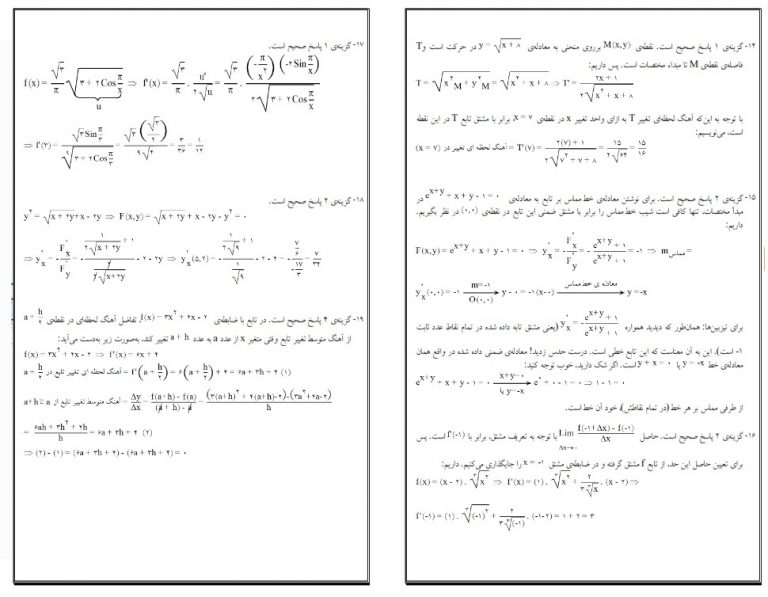 ۱۴- گزینه‌ی ۱ پاسخ صحیح است. نقطه‌ی M(x,y) برروی منحنی به معادله‌ی y = √(x+۸) در حرکت است و T
فاصله‌ی نقطه‌ی M تا مبداء مختصات است. پس داریم:
T = √(x²M + y²M) = √(x² + x + ۸) ⇒ T' = (۲x + ۱) / (۲√(x² + x + ۸))
با توجه به این‌که آهنگ لحظه‌ای تغییر T به ازای واحد تغییر x در نقطه‌ی x = ۷ برابر با مشتق تابع T در این نقطه
است، می‌نویسیم:
(x = ۷) آهنگ لحظه ای تغییر در = T'(۷) = (۲(۷) + ۱) / (۲√(۷² + ۷ + ۸)) = ۱۵ / (۲√۶۴) = ۱۵/۱۶
۱۵- گزینه‌ی ۲ پاسخ صحیح است. برای نوشتن معادله‌ی خط‌مماس بر تابع به معادله‌ی e^(x+y) + x + y - ۱ = ۰ در
مبدأ مختصات، تنها کافی است شیب خط‌مماس را برابر با مشتق ضمنی این تابع در نقطه‌ی (۰,۰) در نظر بگیریم.
داریم:
F(x,y) = e^(x+y) + x + y - ۱ = ۰ ⇒ y'x = - F'x / F'y = - (e^(x+y) + ۱) / (e^(x+y) + ۱) = -۱ ⇒ m مماس =
y'x(۰,۰) = -۱ m=-۱ O(۰,۰) → y - ۰ = -۱(x-۰) معادله ی خط‌مماس → y = -x
برای تیزبین‌ها: همان‌طور که دیدید همواره y'x = - (e^(x+y) + ۱) / (e^(x+y) + ۱) (یعنی مشتق تابه داده شده در تمام نقاط عدد ثابت
۱- است). این به آن معناست که این تابع خطّی است. درست حدس زدید! معادله‌ی ضمنی داده شده در واقع همان
معادله‌ی خط y = -x یا x + y = ۰ است. اگر شک دارید، خوب توجه کنید:
e^(x+y) + x + y - ۱ = ۰ x+y=۰ یا y=-x → e⁰ + ۰ - ۱ = ۰ ⇒ ۱ - ۱ = ۰
از طرفی مماس بر هر خط (در تمام نقاطش)، خود آن خط‌است.
۱۶- گزینه‌ی ۲ پاسخ صحیح است. حاصل Lim Δx→۰ (f(-۱+Δx) - f(-۱)) / Δx با توجه به تعریف مشتق، برابر با f'(-۱) است. پس
برای تعیین حاصل این حد، از تابع f مشتق گرفته و در ضابطه‌ی مشتق x = -۱ را جایگذاری می‌کنیم. داریم:
f(x) = (x - ۲) . ∛x² ⇒ f'(x) = (۱) . ∛x² + ۲ / (۳∛x) . (x - ۲) ⇒
f'(-۱) = (۱) . ∛(-۱)² + ۲ / (۳∛(-۱)) . (-۱-۲) = ۱ + ۲ = ۳
۱۷- گزینه‌ی ۱ پاسخ صحیح است.
f(x) = √۳/π √(۳ + ۲Cos π/x) ⇒ f'(x) = √۳/π . u' / (۲√u) = √۳/π . (-π/x²)(-۲Sin π/x) / (۲√(۳ + ۲Cos π/x))
u
⇒ f'(۳) = √۳Sin π/۳ / (۹√(۳ + ۲Cos π/۳)) = √۳(√۳/۲) / (۹√۴) = ۳/۳۶ = ۱/۱۲
۱۸- گزینه‌ی ۲ پاسخ صحیح است.
y² = √(x + ۲y) + x - ۲y ⇒ F(x,y) = √(x + ۲y) + x - ۲y - y² = ۰
⇒ y'x = - F'x / F'y = - (۱ / (۲√(x + ۲y)) + ۱) / (۲ / (۲√(x+۲y)) - ۲ - ۲y) ⇒ y'x(۵,۲) = - (۱ / (۲√۹) + ۱) / (۱/√۹ - ۲ - ۴) = - (۷/۶) / (-۱۷/۳) = ۷/۳۴
۱۹- گزینه‌ی ۴ پاسخ صحیح است. در تابع با ضابطه‌ی f(x) = ۳x² + ۲x - ۲، تفاضل آهنگ لحظه‌ای در نقطه‌ی a + h/۲
از آهنگ متوسط تغییر تابع وقتی متغیر x از عدد a به عدد a + h تغییر کند، به‌صورت زیر به‌دست می‌آید:
f(x) = ۳x² + ۲x - ۲ ⇒ f'(x) = ۶x + ۲
a + h/۲ آهنگ لحظه ای تغییر تابع در = f'(a + h/۲) = ۶(a + h/۲) + ۲ = ۶a + ۳h + ۲ (۱)
a تا a+h آهنگ متوسط تغییر تابع از = Δy/Δx = (f(a+h) - f(a)) / ((a + h) - a) = ((۳(a+h)² + ۲(a+h)-۲) - (۳a²+۲a-۲)) / h
= (۶ah + ۳h² + ۲h) / h = ۶a + ۳h + ۲ (۲)
⇒ (۲) - (۱) = (۶a + ۳h + ۲) - (۶a + ۳h + ۲) = ۰